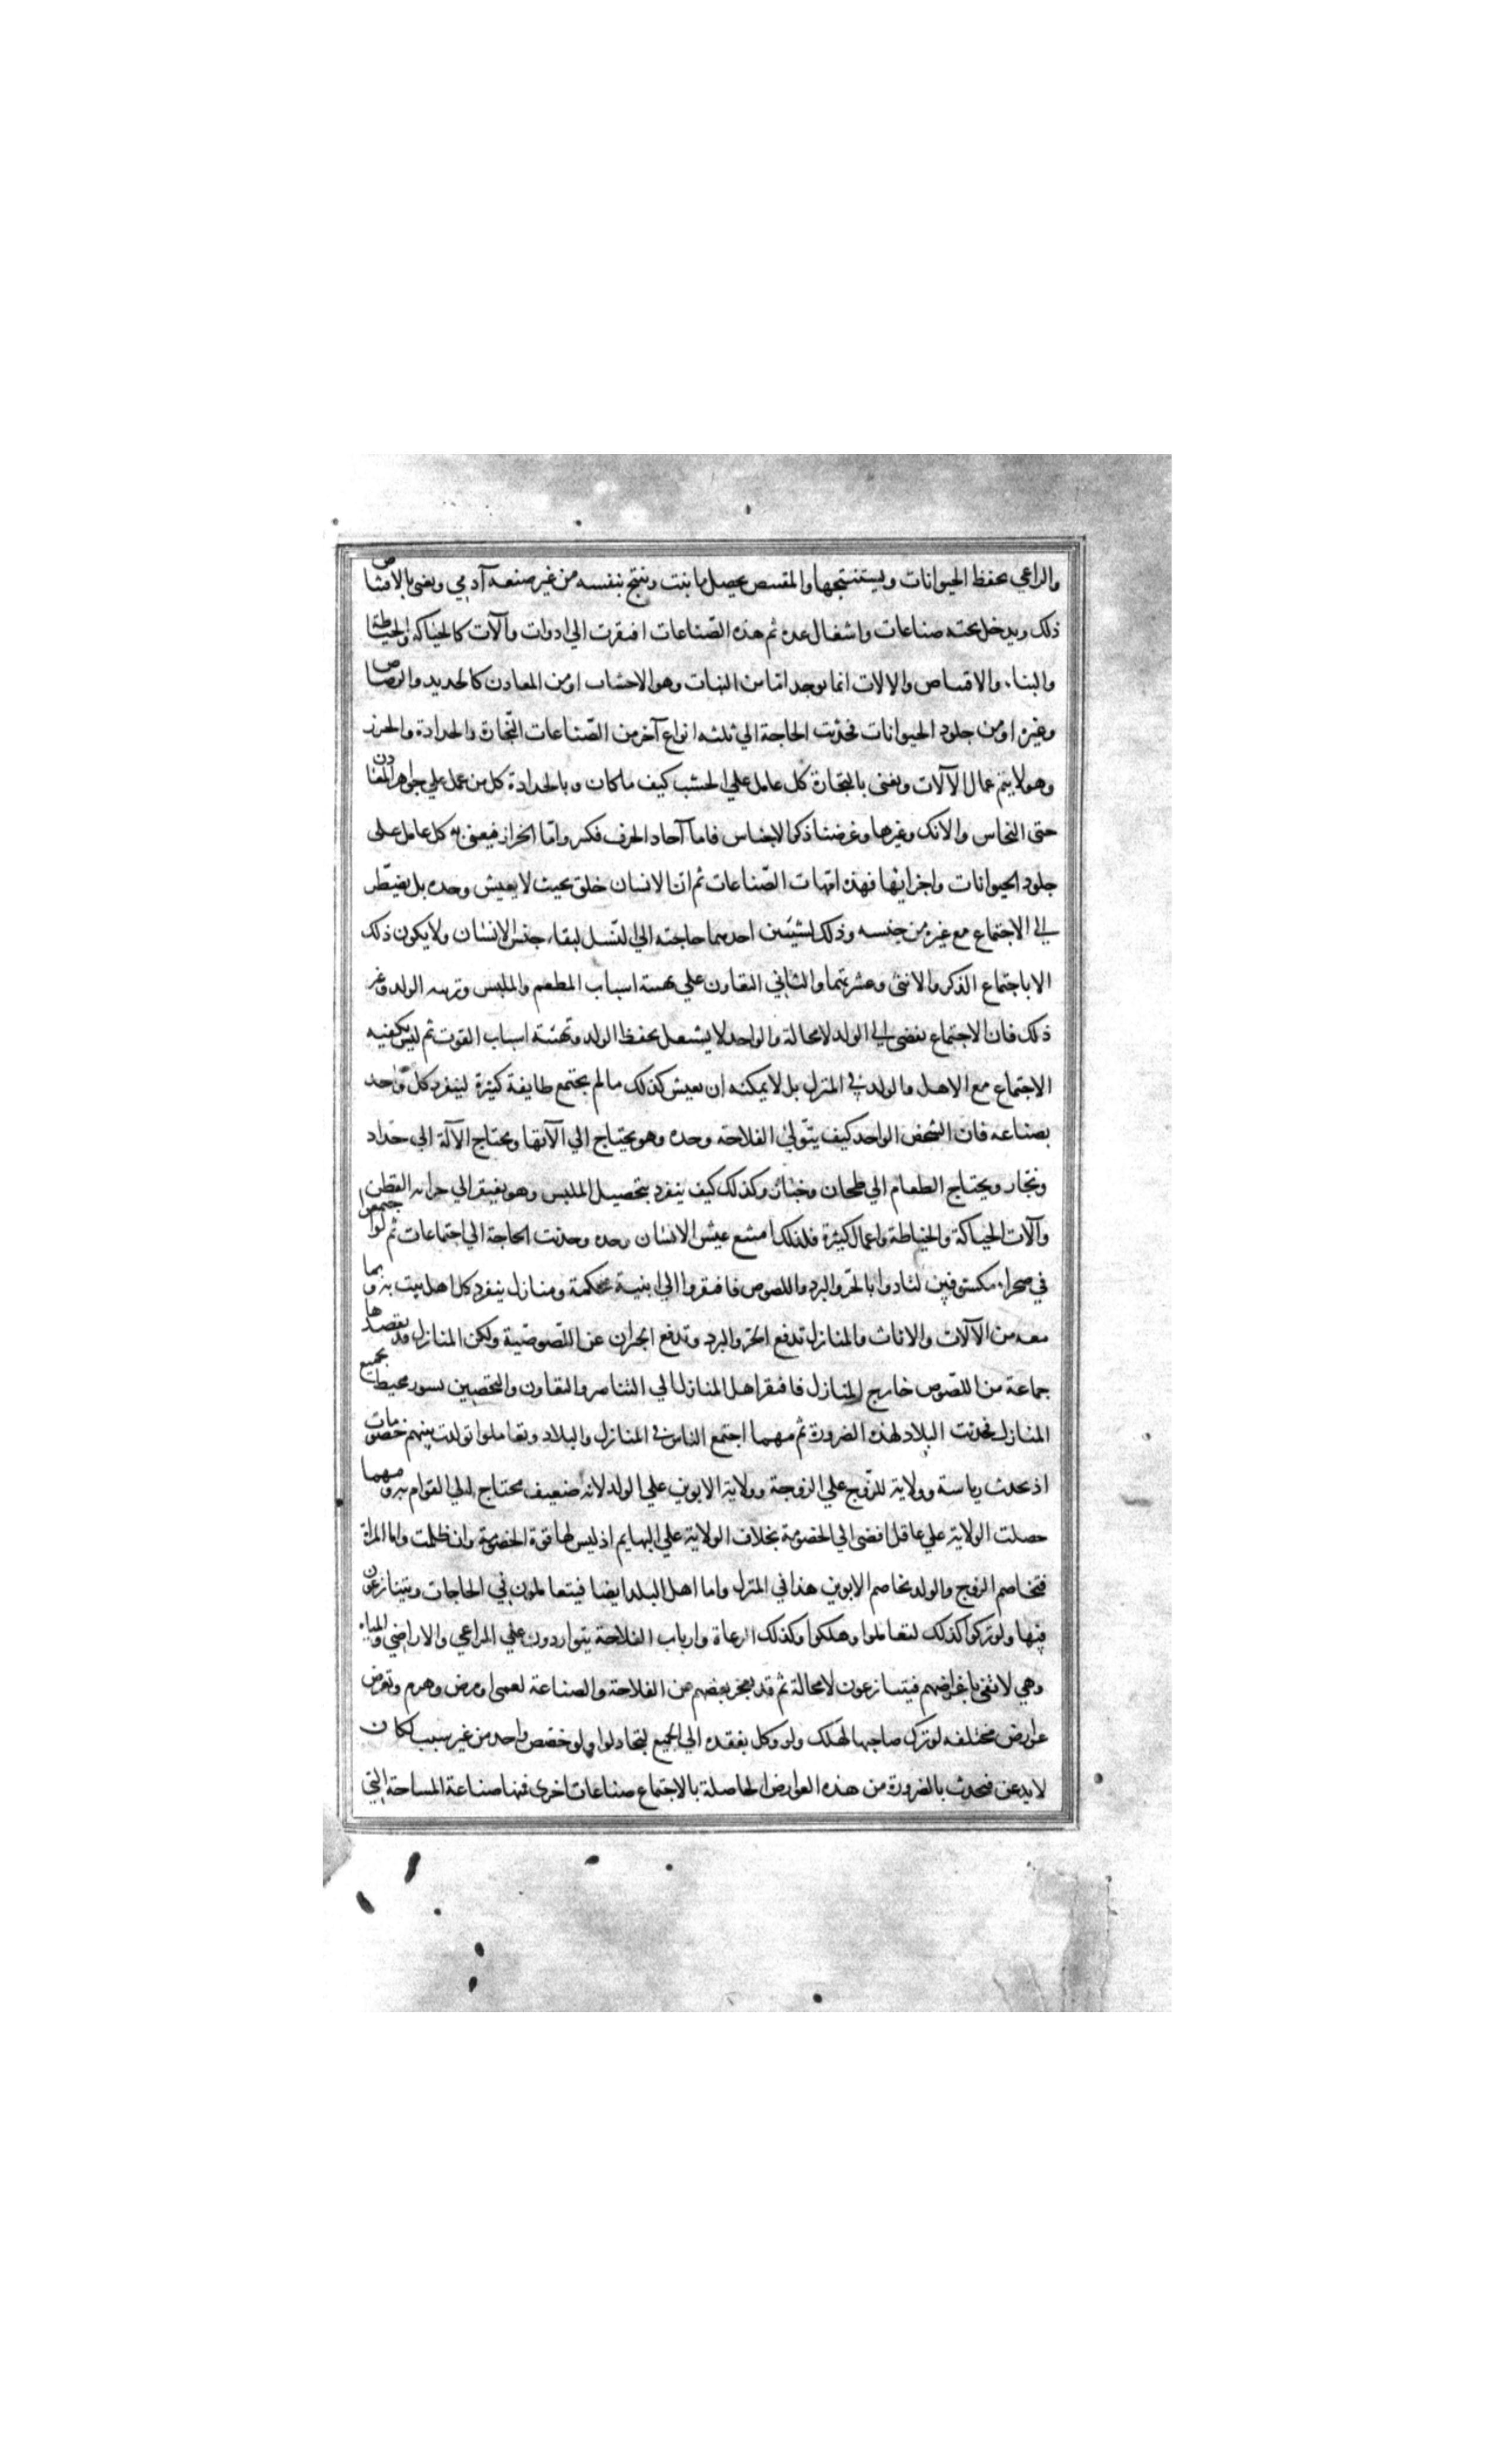 والراعي يحفظ الحيوانات ويستنتجها والمقتنص يحصل ما نبت ونتج بنفسه من غير صنعه آدمي ويعنى بالاقتناص
ذلك ويدخل تحته صناعات واشغال عده ثم هذه الصّناعات افتقرت الي ادوات وآلات كالحياكه والخياطة
والبناء والاقتناص والالات انما يوجد امّا من النبات وهو الاخشاب او من المعادن كالحديد والرصاص
وغيره او من جلود الحيوانات فحدثت الحاجة الي ثلثه انواع آخر من الصّناعات النّجارة والحدادة والخرز
وهولا يتم عمال الآلات ونعنى بالنجارة كل عامل علي الخشب كيف ما كان وبالحدادة كل من عمل علي جواهر المعادن
حتى النحاس والانك وغيرها وغرضنا ذكر الاجناس فاما آحاد الحرف فكثير وامّا الخراز فيعنى به كل عامل على
جلود الحيوانات واجزائها فهذه امّهات الصّناعات ثم انّ الانسان خلق بحيث لا يعيش وحده بل يضطّر
الي الاجتماع مع غيره من جنسه وذلك لشيئين احدهما حاجته الي النّسل لبقاء جنس الانسان ولا يكون ذلك
الا باجتماع الذكر والانثى وعشرتهما والثاني التعاون علي تهيئة اسباب المطعم والملبس وتربيه الولد وغير
ذلك فان الاجتماع يفضى الي الولد لا محالة والواحد لا يشتغل بحفظ الولد وتهيئة اسباب القوت ثم ليس يكفيه
الاجتماع مع الاهل والولد في المنزل بل لا يمكنه ان يعيش كذلك ما لم يجتمع طايفة كثيرة لينفرد كل واحد
بصناعه فان الشخص الواحد كيف يتولّى الفلاحة وحده وهو يحتاج الي آلاتها ويحتاج الآلة الي حدّاد
ونجّار ويحتاج الطعام الي طحان وخبّاز وكذلك كيف ينفرد بتحصيل الملبس وهو يفتقر الي حراثه القطن
وآلات الحياكة والخياطة واعمال كثيرة فلذلك امتنع عيش الانسان وحده وحدثت الحاجة الي اجتماعات ثم لو اجتمعوا
في صحراء مكشوفين لتاذوا بالحرّ والبرد واللصوص فافتقروا الي ابنية محكمة ومنازل ينفرد كل اهل بيت به وبما
معه من الآلات والاثاث والمنازل تدفع الحرّ والبرد وتدفع الجيران عن اللّصوصّية ولكن المنازل قد يقصدها
جماعة من اللصّوص خارج المنازل فافتقر اهل المنازل الي التناصر والتعاون والتحصين بسور محيط بجميع
المنازل فحدثت البلاد لهذه الضرورة ثم مهما اجتمع الناس في المنازل والبلاد وتعاملوا تولدت بينهم خصومات
اذ يحدث رياسة وولاية للزّوج علي الزوجة وولاية الابوين علي الولد لانّه ضعيف محتاج الي القوام به ومهما
حصلت الولاية علي عاقل افضى الي الخصومة بخلاف الولاية علي البهايم اذ ليس لها قوة الخصومة وان ظلمت واما المراة
فتخاصم الزوج والولد يخاصم الابوين هذا في المنزل واما اهل البلد ايضا فيتعاملون في الحاجات ويتنازعون
فيها ولو تركوا كذلك لتقاتلوا وهلكوا وكذلك الرعاة وارباب الفلاحة يتواردون علي المراعي والاراضي والمياه
وهي لا تفى باغراضهم فيتنازعون لا محالة ثم قد يعجز بعضهم عن الفلاحة والصناعة لعمى او مرض وهرم وتعرض
عوارض مختلفه لو ترك صاحبها لهلك ولو وكل تفقده الي الجميع لتخاذلوا ولو خصّص واحد من غير سبب لكان
لا يذعن فيحدث بالضرورة من هذه العوارض الحاصلة بالاجتماع صناعات اخرى فمنها صناعة المساحة التي